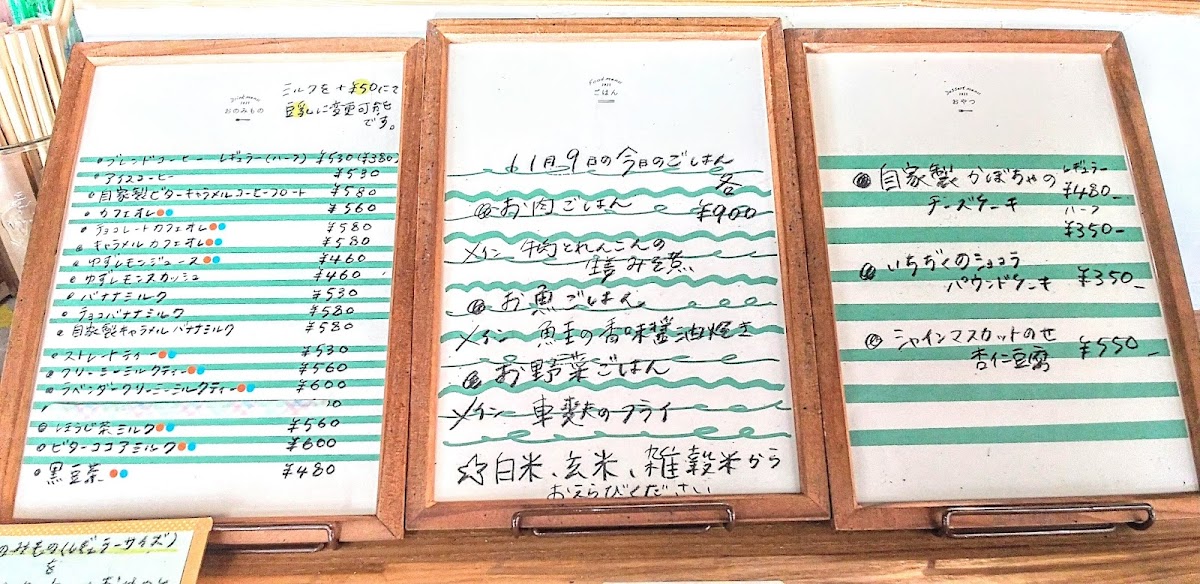 Drink menu
おのみもの
ミルクを+¥50にて
豆乳に変更可能
です。
ブレンドコーヒー レギュラー(ハーフ) ¥530(¥380)
アイスコーヒー ¥530
自家製ビターキャラメルコーヒーフロート ¥580
カフェオレ ¥560
チョコレートカフェオレ ¥580
キャラメルカフェオレ ¥580
ゆずレモンジュース ¥460
ゆずレモンスカッシュ ¥460
バナナミルク ¥530
チョコバナナミルク ¥580
自家製キャラメルバナナミルク ¥580
ストレートティー ¥530
クリーミーミルクティー ¥560
ラベンダークリーミーミルクティー ¥600
ほうじ茶ミルク ¥560
ビターココアミルク ¥600
黒豆茶 ¥480
のみもの(レギュラーサイズ)
を
Food menu
ごはん
11月9日の今日のごはん
各
お肉ごはん ¥900
メイン 牛肉とれんこんの
生姜みそ煮
お魚ごはん
メイン 魚の香味醤油焼き
お野菜ごはん
メイン 車麩のフライ
☆白米、玄米、雑穀米から
おえらびください
Dessert menu
おやつ
自家製かぼちゃの レギュラー
チーズケーキ ¥480
ハーフ
¥350-
いちぢくのショコラ
パウンドケーキ ¥350-
シャインマスカットのせ
杏仁豆腐 ¥550-